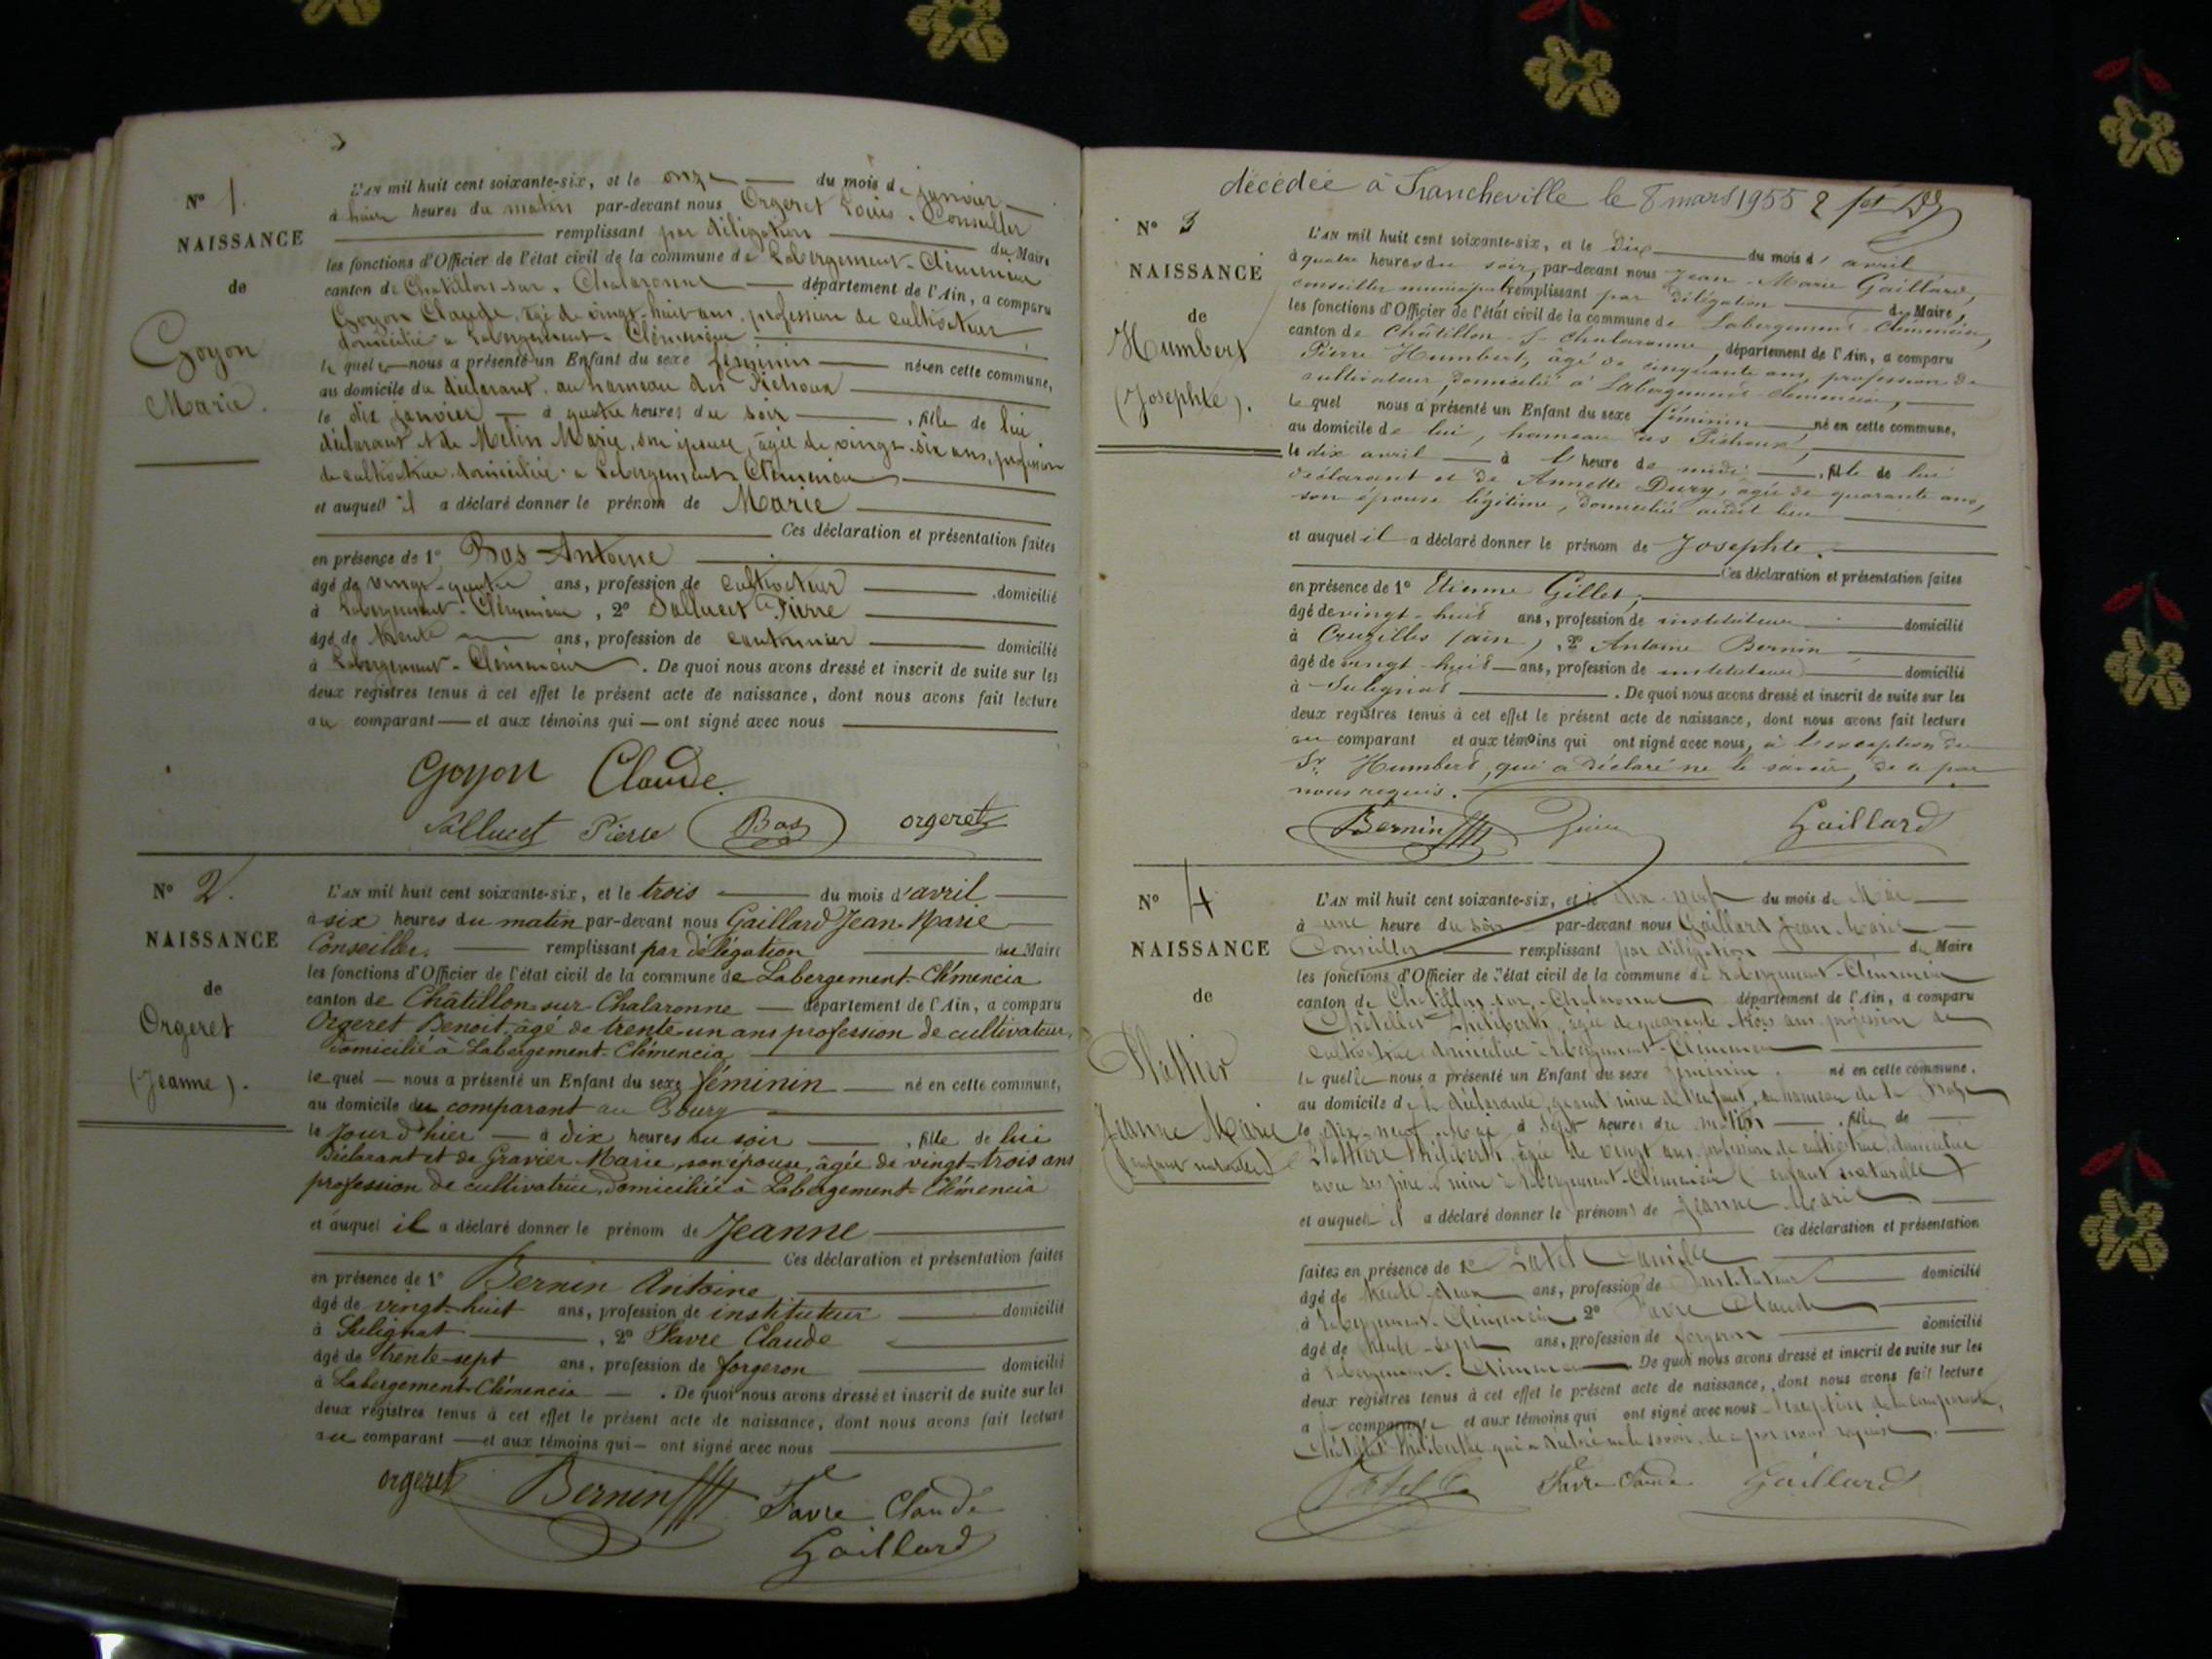 N° 1.
NAISSANCE
de
Goyon
Marie.
L'AN mil huit cent soixante-six, et le onze du mois de janvier
à huit heures du matin par-devant nous Orgeret Louis, Conseiller
remplissant par délégation du Maire
les fonctions d'Officier de l'état civil de la commune de Labergement-Clémencia
canton de Chatillon-sur-Chalaronne département de l'Ain, a comparu
Goyon Claude, âgé de vingt-huit ans, profession de cultivateur
domicilié à Labergement-Clémencia
lequel nous a présenté un Enfant du sexe féminin né en cette commune,
au domicile du déclarant, au hameau des Pichoux
le dix janvier à quatre heures du soir, fille de lui
déclarant et de Marie, son épouse, âgée de vingt-six ans, profession
de cultivatrice domiciliée à Labergement-Clémencia
et auquel il a déclaré donner le prénom de Marie
Ces déclaration et présentation faites
en présence de 1° Bas Antoine
âgé de vingt-quatre ans, profession de cultivateur domicilié
à Labergement-Clémencia, 2° Sallucet Pierre
âgé de trente ans, profession de cantonnier domicilié
à Labergement-Clémencia. De quoi nous avons dressé et inscrit de suite sur les
deux registres tenus à cet effet le présent acte de naissance, dont nous avons fait lecture
au comparant et aux témoins qui ont signé avec nous
Goyon Claude
Sallucet Pierre Bas orgeret
N° 2.
NAISSANCE
de
Orgeret
(Jeanne).
L'AN mil huit cent soixante-six, et le trois du mois d'avril
à six heures du matin par-devant nous Gaillard Jean-Marie
Conseiller, remplissant par délégation du Maire
les fonctions d'Officier de l'état civil de la commune de Labergement-Clémencia
canton de Châtillon sur Chalaronne département de l'Ain, a comparu
Orgeret Benoit, âgé de trente-un ans profession de cultivateur,
domicilié à Labergement-Clémencia
lequel nous a présenté un Enfant du sexe féminin né en cette commune,
au domicile du comparant au Goury
le Jour d'hier à dix heures du soir, fille de lui
Déclarant et de Gravier Marie, son épouse, âgée de vingt-trois ans
profession de cultivatrice, domiciliée à Labergement-Clémencia
et auquel il a déclaré donner le prénom de Jeanne
Ces déclaration et présentation faites
en présence de 1° Bernin Antoine
âgé de vingt-huit ans, profession de instituteur domicilié
à Sulignat, 2° Favre Claude
âgé de trente-sept ans, profession de forgeron domicilié
à Labergement-Clémencia. De quoi nous avons dressé et inscrit de suite sur les
deux registres tenus à cet effet le présent acte de naissance, dont nous avons fait lecture
au comparant et aux témoins qui ont signé avec nous
orgeret Bernin Favre Claude
Gaillard
décédée à Francheville le 8 mars 1955
N° 3
NAISSANCE
de
Humbert
(Josephte).
L'AN mil huit cent soixante-six, et le Dix du mois d'avril
à quatre heures du soir, par-devant nous Jean-Marie Gaillard,
conseiller municipal, remplissant par délégation du Maire,
les fonctions d'Officier de l'état civil de la commune de Labergement-Clémencia,
canton de Châtillon-s-Chalaronne, département de l'Ain, a comparu
Pierre Humbert, âgé de cinquante ans, profession de
cultivateur, domicilié à Labergement-Clémencia,
lequel nous a présenté un Enfant du sexe féminin né en cette commune,
au domicile de lui, hameau des Pichoux,
le dix avril à l'heure de midi, fille de lui
déclarant et de Annette Dury, agée de quarante ans,
son épouse légitime, domiciliée audit lieu
et auquel il a déclaré donner le prénom de Josephte.
Ces déclaration et présentation faites
en présence de 1° Etienne Gillet,
âgé de vingt-huit ans, profession de instituteur domicilié
à Cruzilles (ain), 2° Antoine Bernin
âgé de vingt-huit ans, profession de instituteur domicilié
à Sulignat. De quoi nous avons dressé et inscrit de suite sur les
deux registres tenus à cet effet le présent acte de naissance, dont nous avons fait lecture
au comparant et aux témoins qui ont signé avec nous, à l'exception du
Sr. Humbert, qui a déclaré ne le savoir, de ce par
nous requis.
Bernin Gaillard
N° 4
NAISSANCE
de
Jeanne Marie
(enfant naturelle)
L'AN mil huit cent soixante-six, et le dix-neuf du mois de Mai
à une heure du soir par-devant nous Gaillard Jean Marie
Conseiller remplissant par délégation du Maire
les fonctions d'Officier de l'état civil de la commune de Labergement-Clémencia
canton de Chatillon-sur-Chalaronne département de l'Ain, a comparu
Philiberth, âgée de quarante trois ans profession de
cultivatrice domiciliée à Labergement-Clémencia
laquelle nous a présenté un Enfant du sexe féminin né en cette commune,
au domicile de la déclarante, grand mère de l'enfant, au hameau de la
le dix-neuf Mai à sept heures du matin, fille de
Philiberth, âgée de vingt ans, profession de cultivatrice, domiciliée
avec ses père et mère à Labergement-Clémencia (enfant naturelle)
et auquel il a déclaré donner le prénoms de Jeanne Marie
Ces déclaration et présentation
faites en présence de 1° Camille
âgé de trente-deux ans, profession de Instituteur domicilié
à Labergement-Clémencia 2° Favre Claude
âgé de trente-sept ans, profession de forgeron domicilié
à Labergement-Clémencia. De quoi nous avons dressé et inscrit de suite sur les
deux registres tenus à cet effet le présent acte de naissance, dont nous avons fait lecture
a la comparante et aux témoins qui ont signé avec nous à l'exception de la comparante,
Philiberthe qui a déclaré ne le savoir, de ce par nous requise
Favre Claude Gaillard